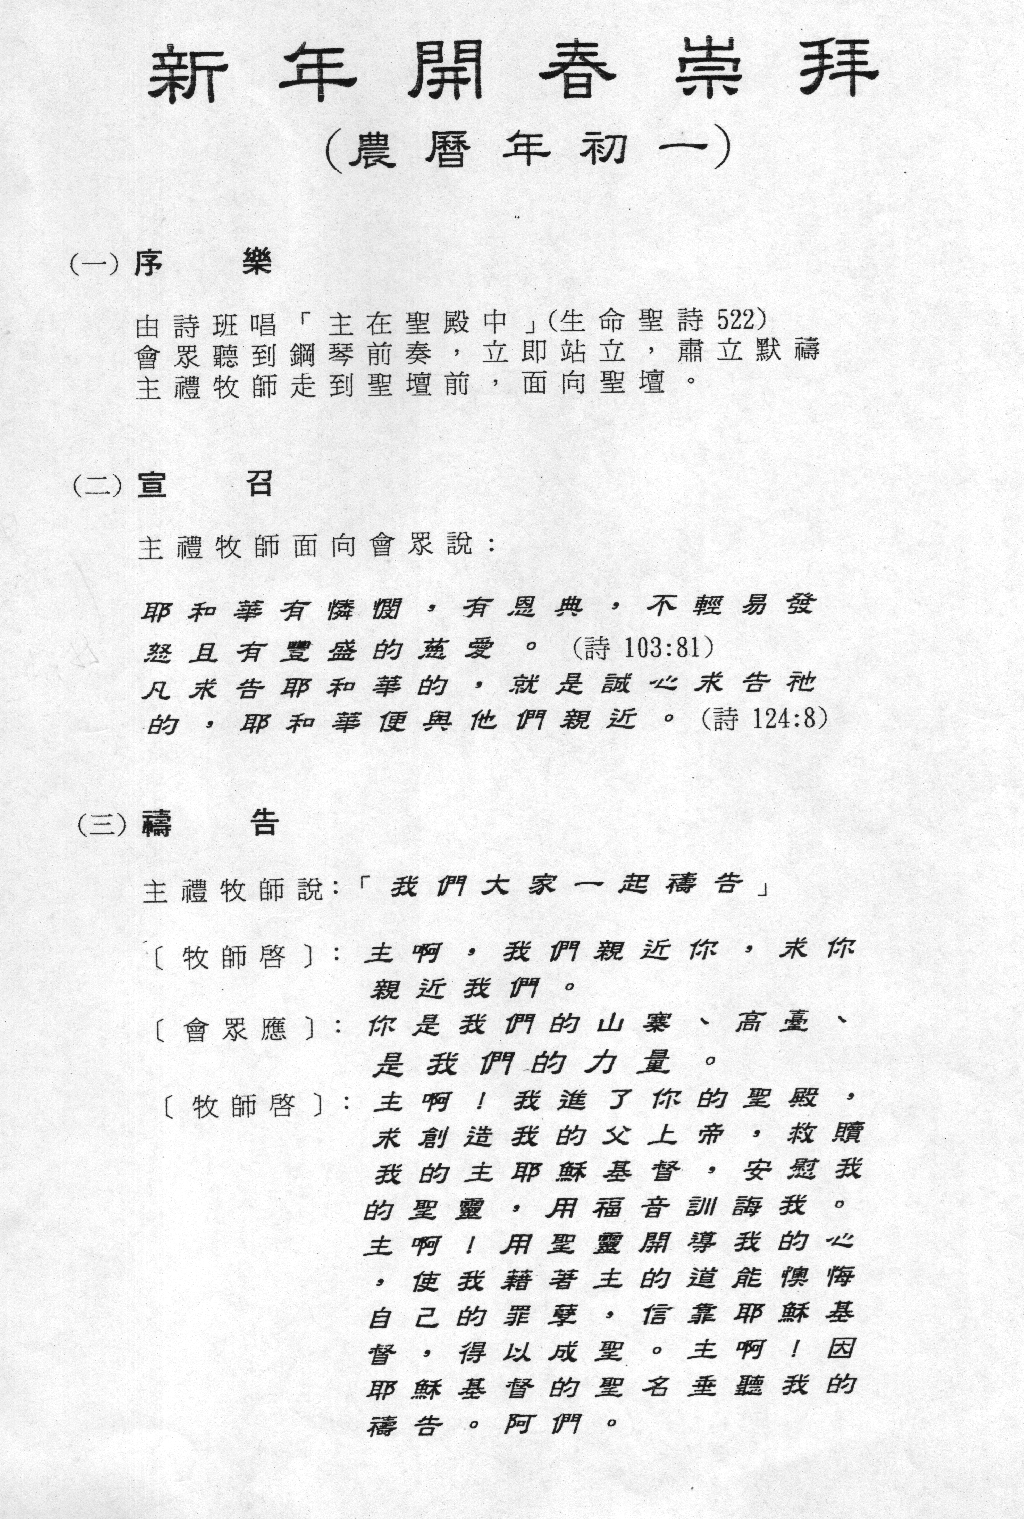 新年開春崇拜
(農曆年初一)
(一)序 樂
由詩班唱「主在聖殿中」(生命聖詩 522)
會眾聽到鋼琴前奏，立即站立，肅立默禱
主禮牧師走到聖壇前，面向聖壇。
(二)宣 召
主禮牧師面向會眾說：
耶和華有憐憫，有恩典，不輕易發
怒且有豐盛的慈愛。(詩 103:81)
凡求告耶和華的，就是誠心求告祂
的，耶和華便與他們親近。(詩 124:8)
(三)禱 告
主禮牧師說：「我們大家一起禱告」
〔牧師啓〕：主啊，我們親近你，求你
親近我們。
〔會眾應〕：你是我們的山寨、高臺、
是我們的力量。
〔牧師啓〕：主啊！我進了你的聖殿，
求創造我的父上帝，救贖
我的主耶穌基督，安慰我
的聖靈，用福音訓誨我。
主啊！用聖靈開導我的心
，使我藉著主的道能懊悔
自己的罪孽，信靠耶穌基
督，得以成聖。主啊！因
耶穌基督的聖名垂聽我的
禱告。阿們。